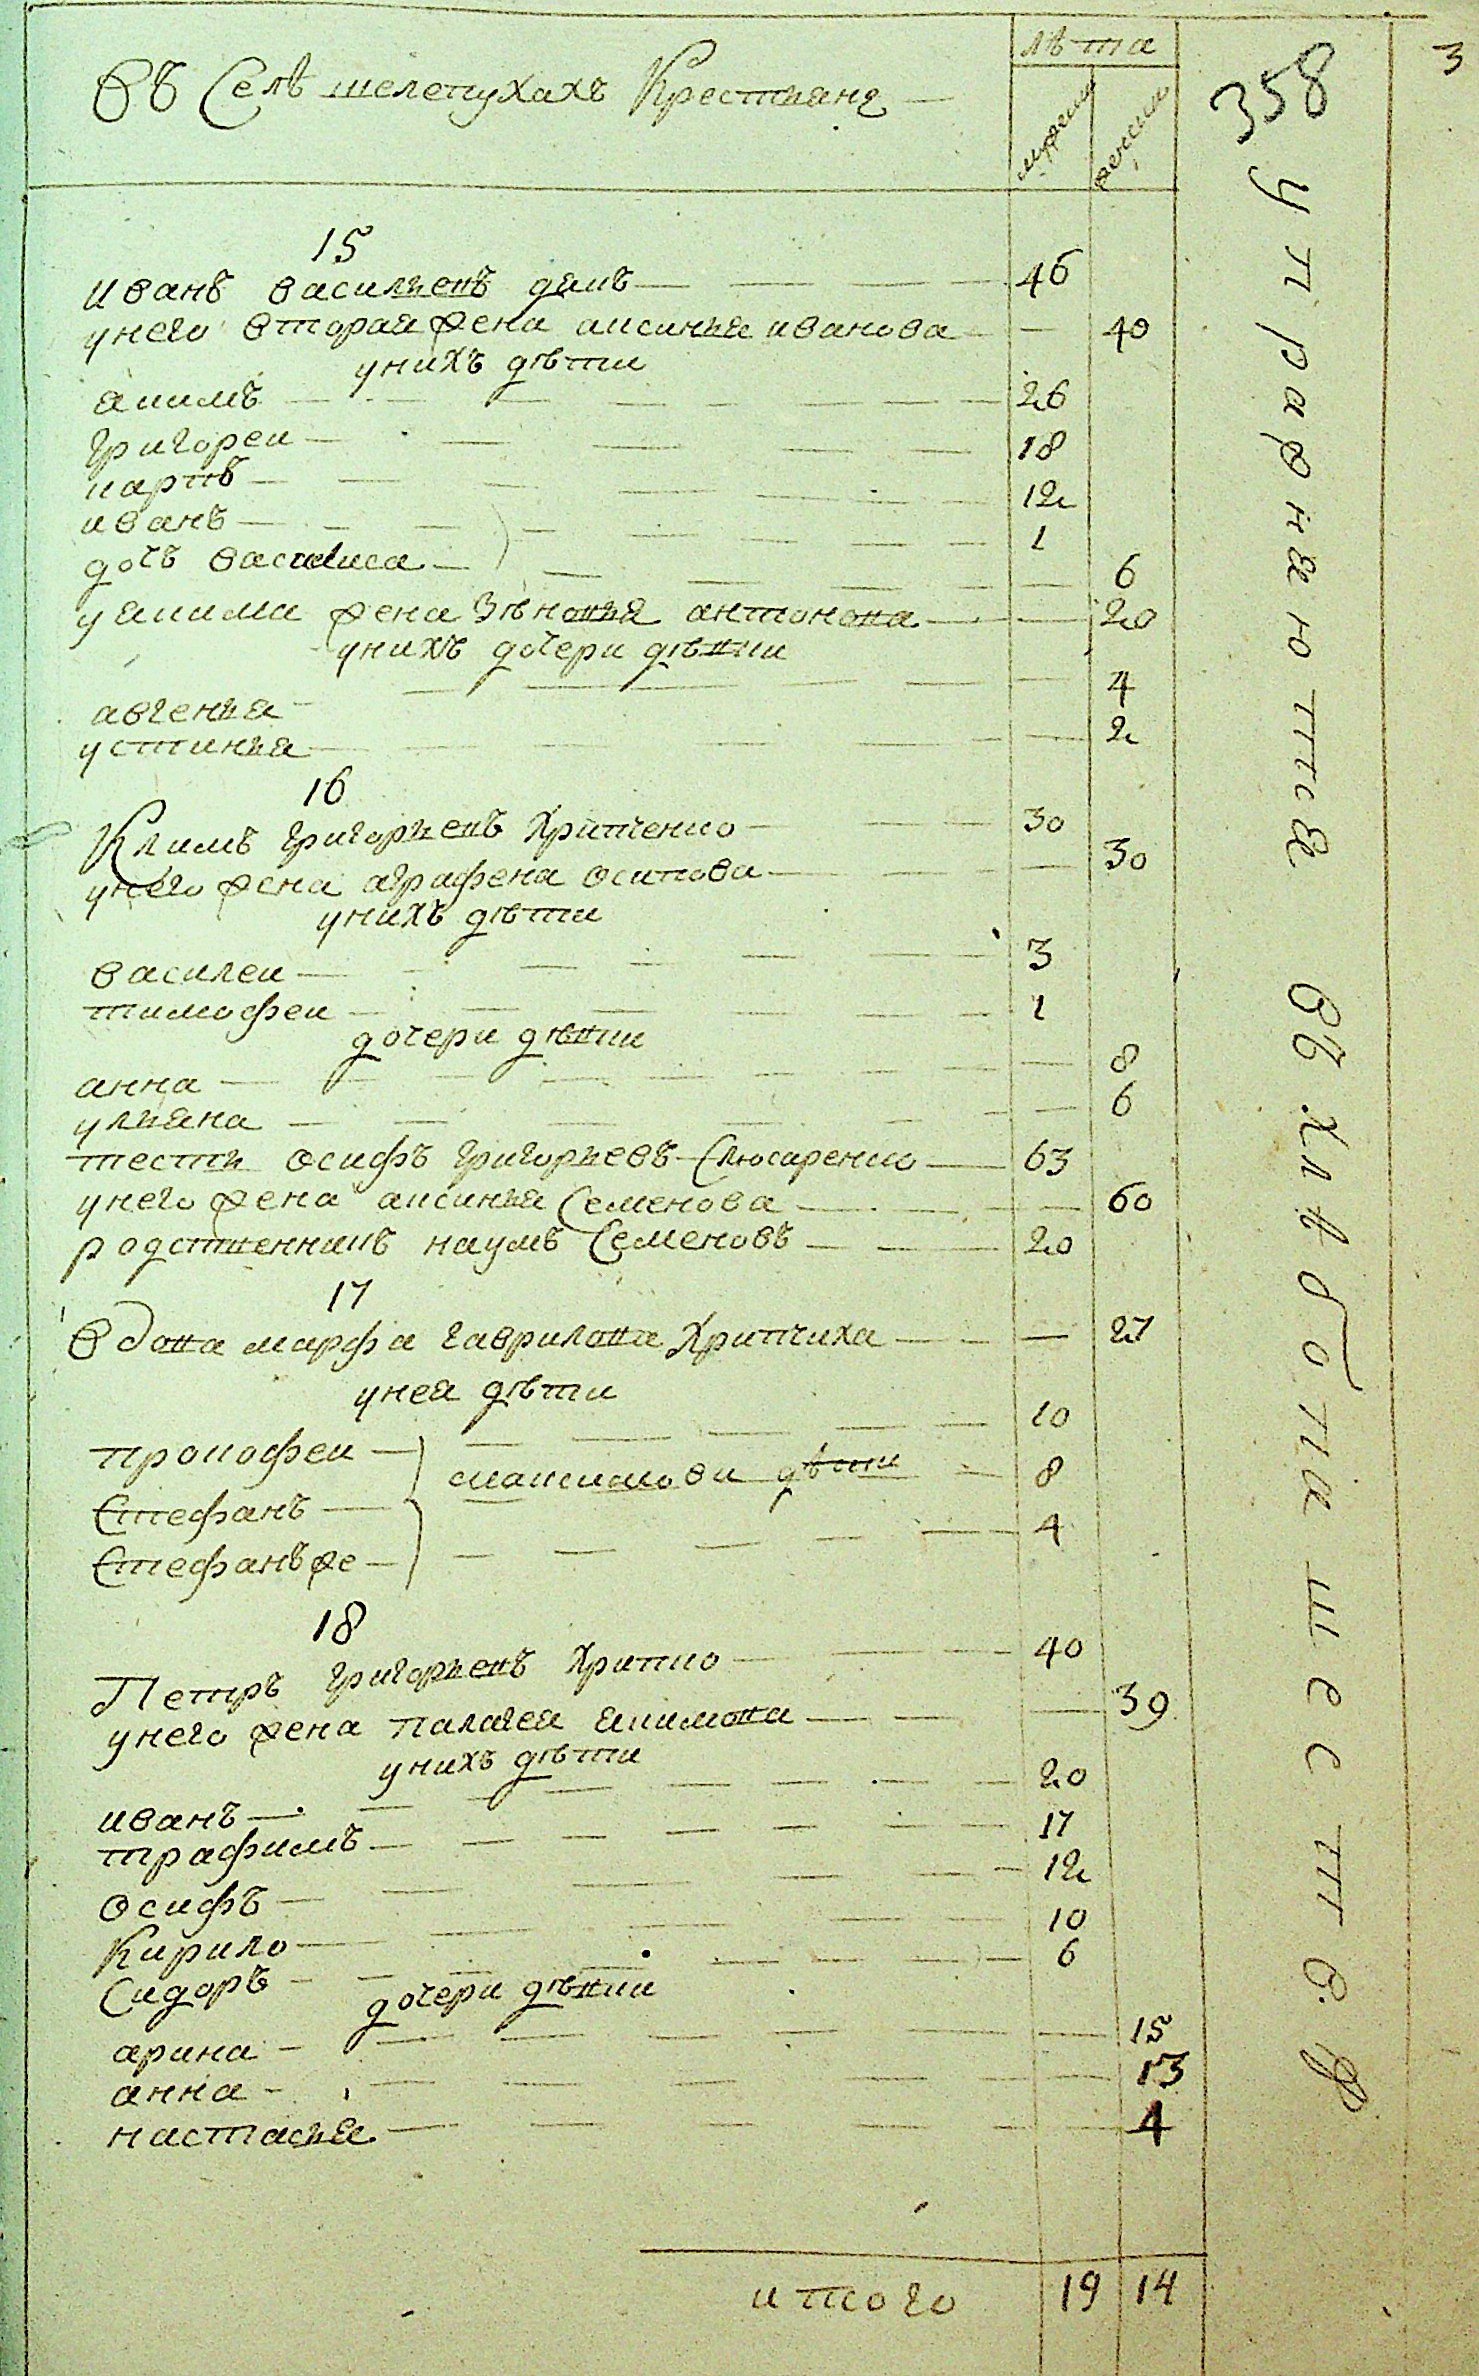 въ Селѣ шелепухахъ Крестьяне
лѣта
мужеска
женска
358
3
15
иванъ васильевъ дякъ 46
унего вторая жена аксинья иванова 40
унихъ дѣти
якимъ 26
григореи 18
карпъ 12
иванъ 1
дочь василиса 6
уякима жена Зѣновья антонова 20
унихъ дочери дѣвки
авгенья 4
устинья 2
16
Климъ григорьевъ Хрипченко 30
унего жена аграфена осипова 30
унихъ дѣти
василеи 3
тимофеи 1
дочери дѣвки
анна 8
ульяна 6
тесть осифъ григорьевъ Слюсаренко 63
унего жена аксинья Семенова 60
родственникъ наумъ Семеновъ 20
17
вдова марфа гаврилова Хрипчиха 27
унея дѣти
прокофеи 10
Стефанъ максимови дѣти 8
Стефанъже 4
18
Петръ григорьевъ Хрипко 40
унего жена палагея якимова 39
унихъ дѣти
иванъ 20
трафимъ 17
осифъ 12
Кирило 10
Сидоръ 6
дочери дѣвки
арина 15
анна 13
настасья 4
итого 19 14
упражняются въ хлѣбопашеств